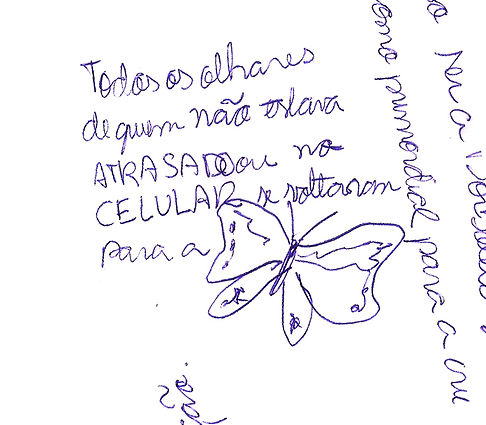 Todos os olhares
de quem não estava
ATRASADO ou no
CELULAR se voltaram
para a
como primordial para a